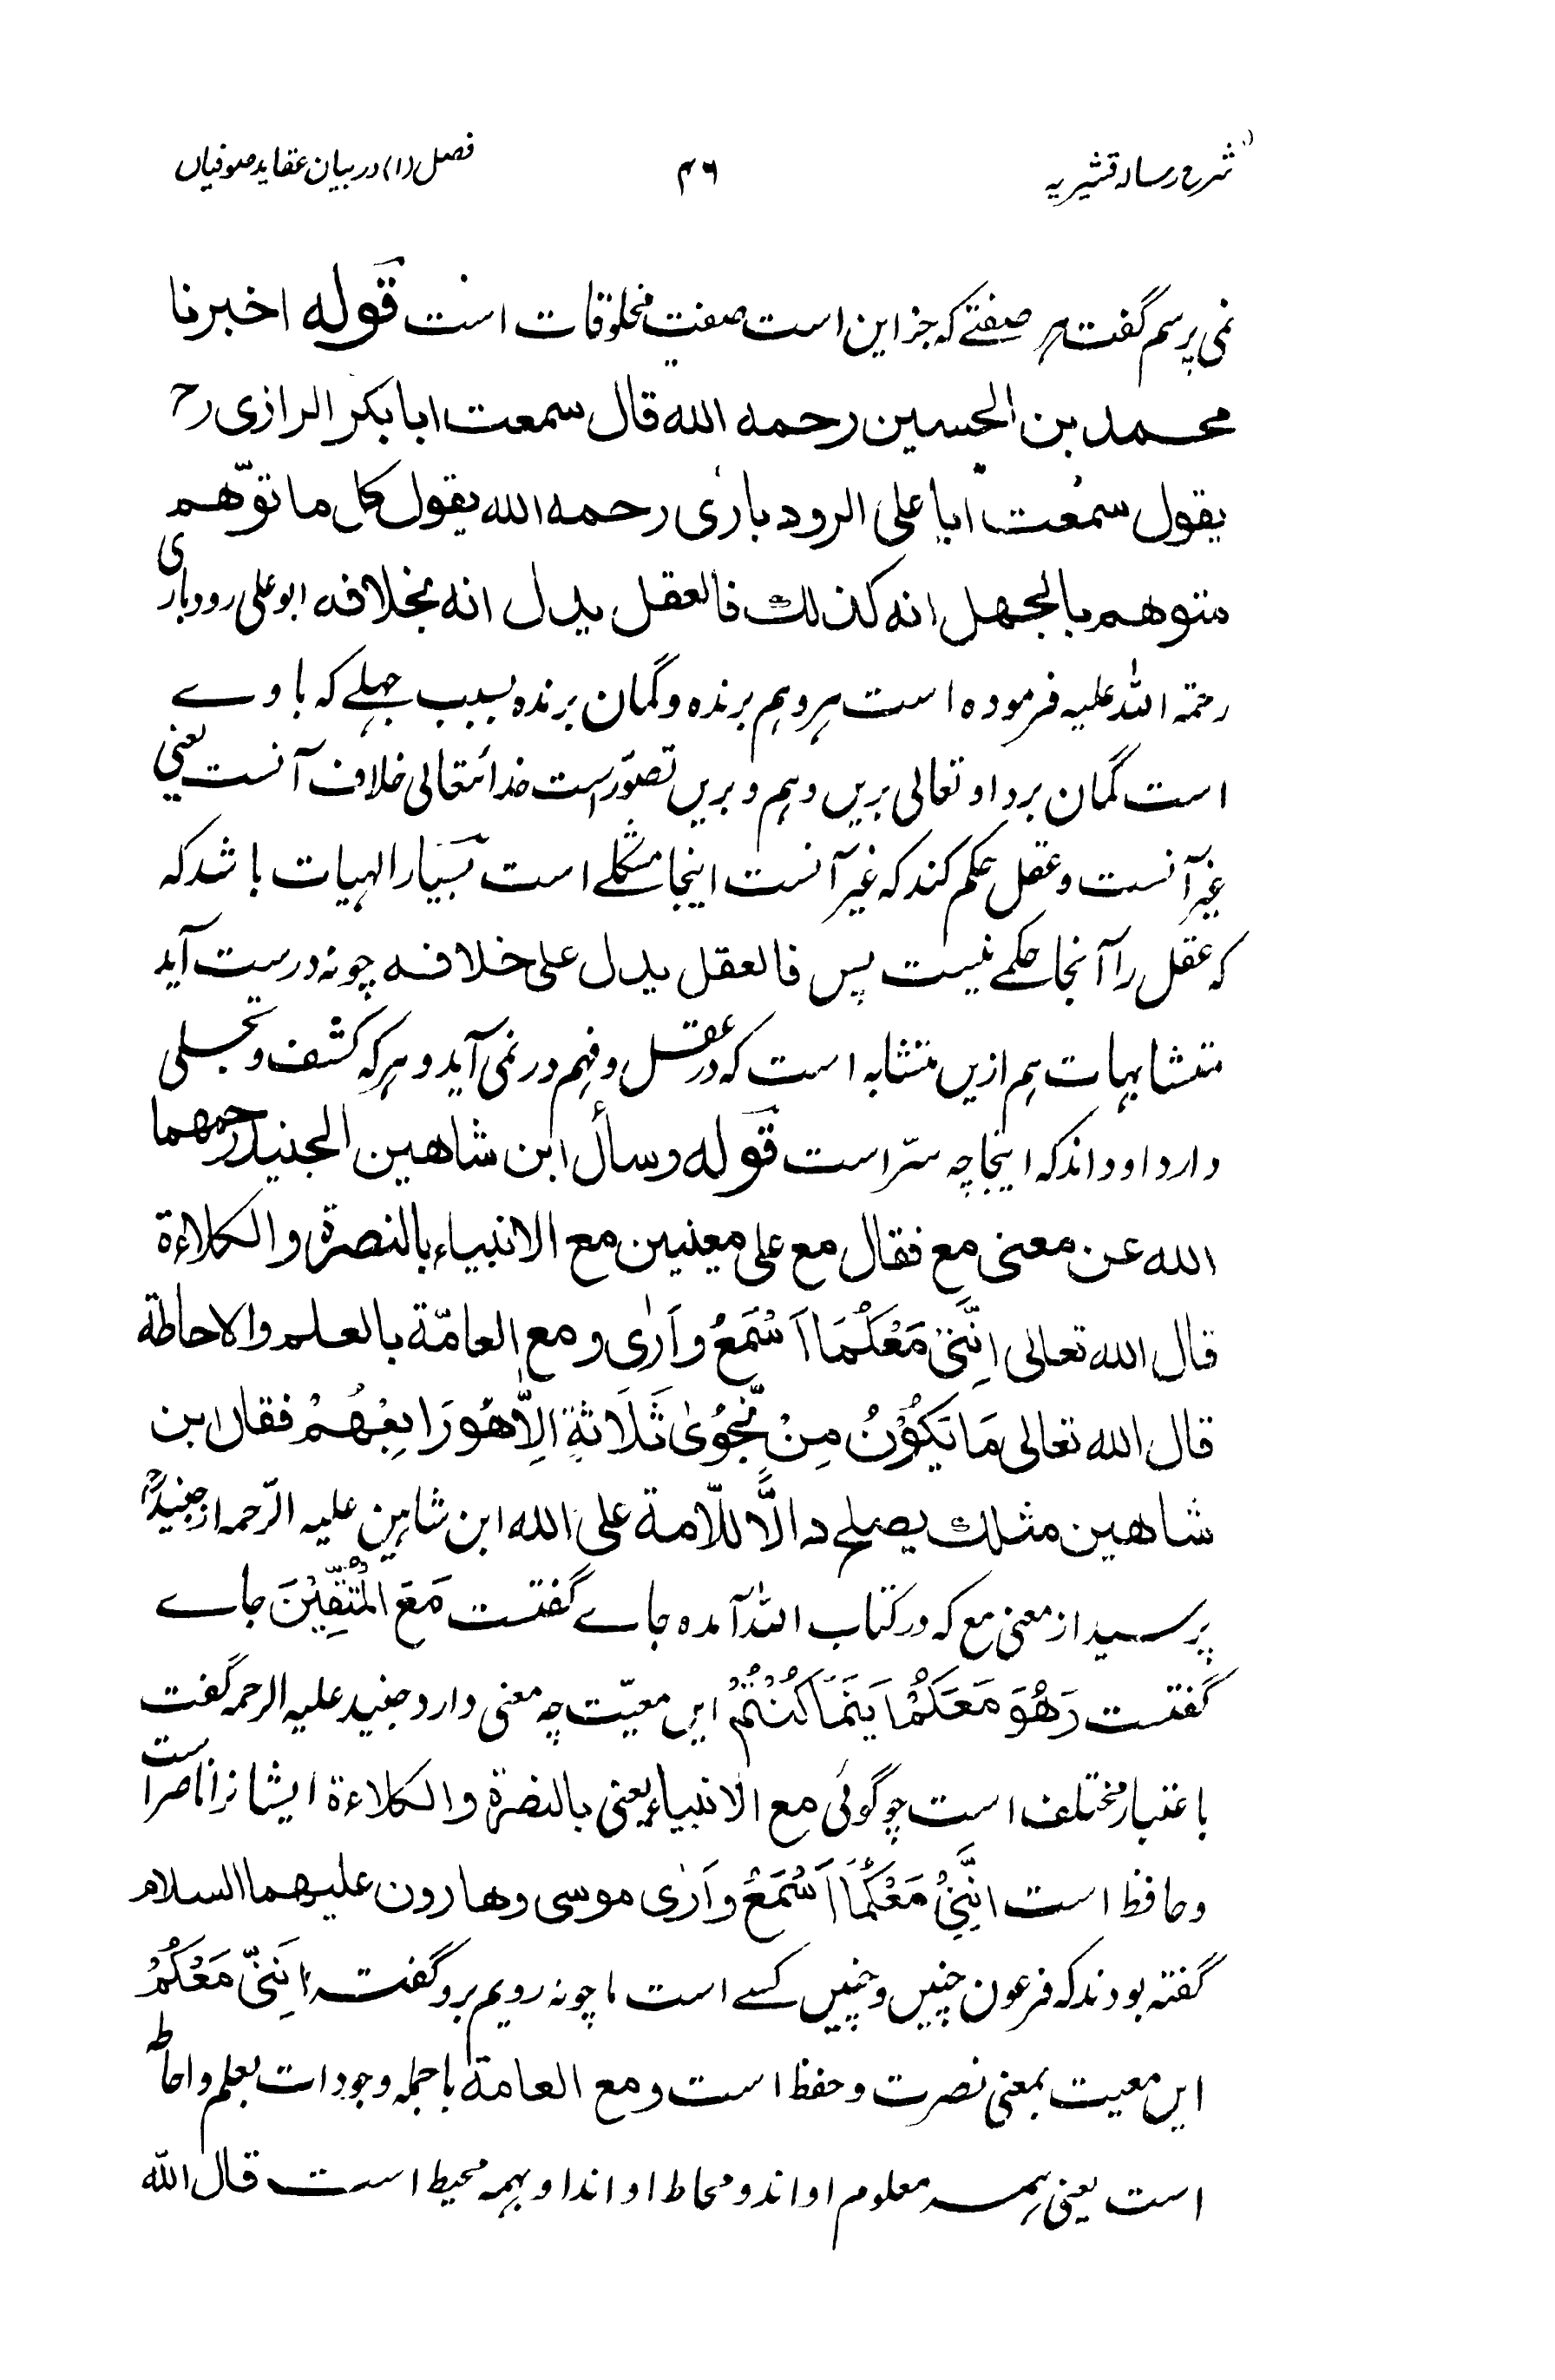 شرح رسالہ قشیریہ ۴۶ فصل (۱) در بیان عقاید صوفیاں
نمی پرسم گفت ہر صفتے کہ جز این است صفت مخلوقات است قوله اخبرنا
محمد بن الحسين رحمه الله قال سمعت ابا بكر الرازى رح
يقول سمعت ابا على الرودبارى رحمه الله يقول كل ما توّهم
متوهم بالجهل انه كذلك فالعقل يدل انه بخلافه ابو علی رودباری
رحمۃ اللہ علیہ فرمودہ است ہر وہم برندہ و گمان برندہ بسبب جہلے کہ با وے
است گمان برد او تعالی بریں وہم و بریں تصوّر است خدائتعالی خلاف آنست یعنی
غیر آنست و عقل حکم کند کہ غیر آنست اینجا مشکلے است بسیار الہیات باشد کہ
کہ عقل را آنجا حکمے نیست پس فالعقل يدل على خلافه چونہ درست آید
متشابہات ہم ازیں متشابہ است کہ در عقل و فہم در نمی آید و ہر کہ کشف و تجلی
دارد او داند کہ اینجا چہ سرّ است قوله وسأل ابن شاهين الجنيد رحمهما
الله عن معنى مع فقال مع على معنيين مع الانبياء بالنصرة والكلاءة
قال الله تعالى اِنَّنِىْ مَعَكُمَا اَسْمَعُ وَاَرٰى ومع العامّة بالعلم والاحاطة
قال الله تعالى مَا يَكُوْنُ مِنْ نَّجْوٰى ثَلَاثَةٍ اِلَّا هُوَ رَابِعُهُمْ فقال ابن
شاهين مثلك يصلح دالًّا للّامة على الله ابن شاہین علیہ الرّحمہ از جنیدؒ
پرسید از معنی مع کہ در کتاب اللہ آمدہ جاے گفتست مَعَ الْمُتَّقِيْنَ جاے
گفتست وَهُوَ مَعَكُمْ اَيْنَمَا كُنْتُمْ این معیّت چہ معنی دارد جنید علیہ الرحمہ گفت
باعتبار مختلف است چو گوئی مع الانبياء یعنی بالنصرة والكلاءة ایشانرا ناصر است
و حافظ است اِنَّنِىْ مَعَكُمَا اَسْمَعُ وَاَرٰى موسى وهارون عليهما السلام
گفتہ بودند کہ فرعون چنیں و چنیں کسے است ما چونہ رویم برو گفت اِنَنِىّ مَعَكُمْ
این معیت بمعنی نصرت و حفظ است و مع العامة با جملہ وجودات بعلم و احاطہ
است یعنی ہمہ معلوم او اند و محاط او اند او بہمہ محیط است قال الله